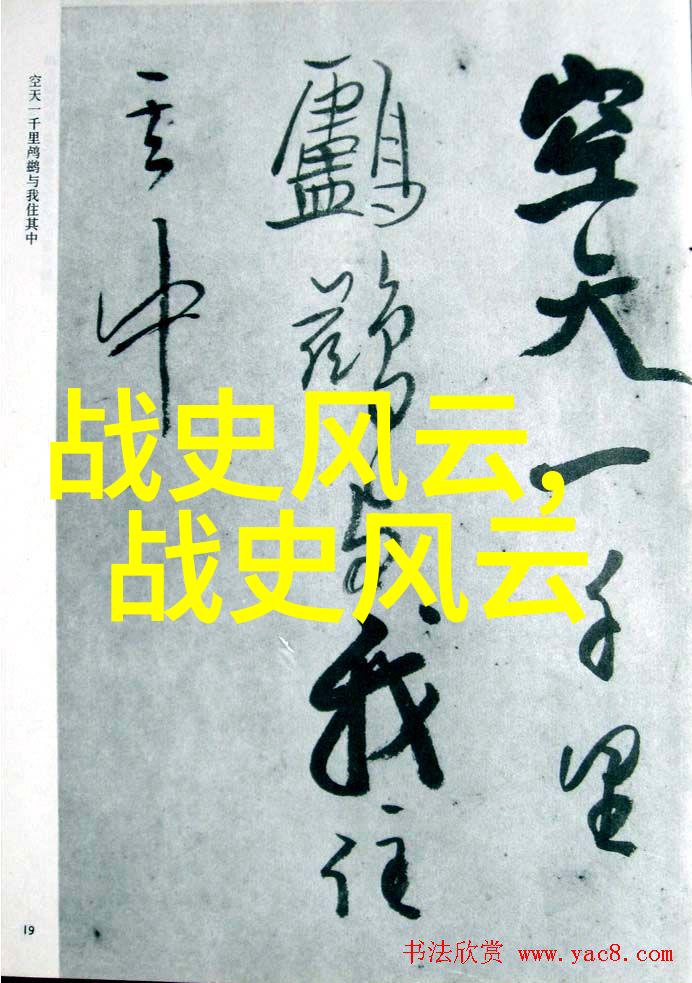 空天一千里
鸕鷀与我住
其中
空天一千里鸬鹚与我住其中
战史风云,
战史风云
19
书法欣赏 www.yac8.com